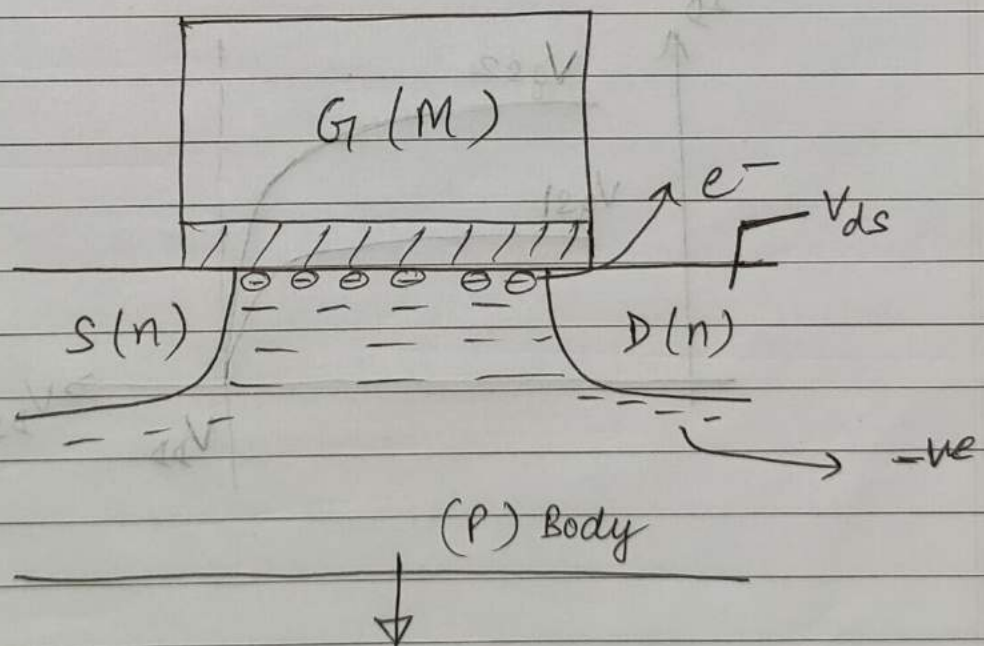 G (M)
e⁻
Vds
S(n)
D(n)
-ve
(P) Body